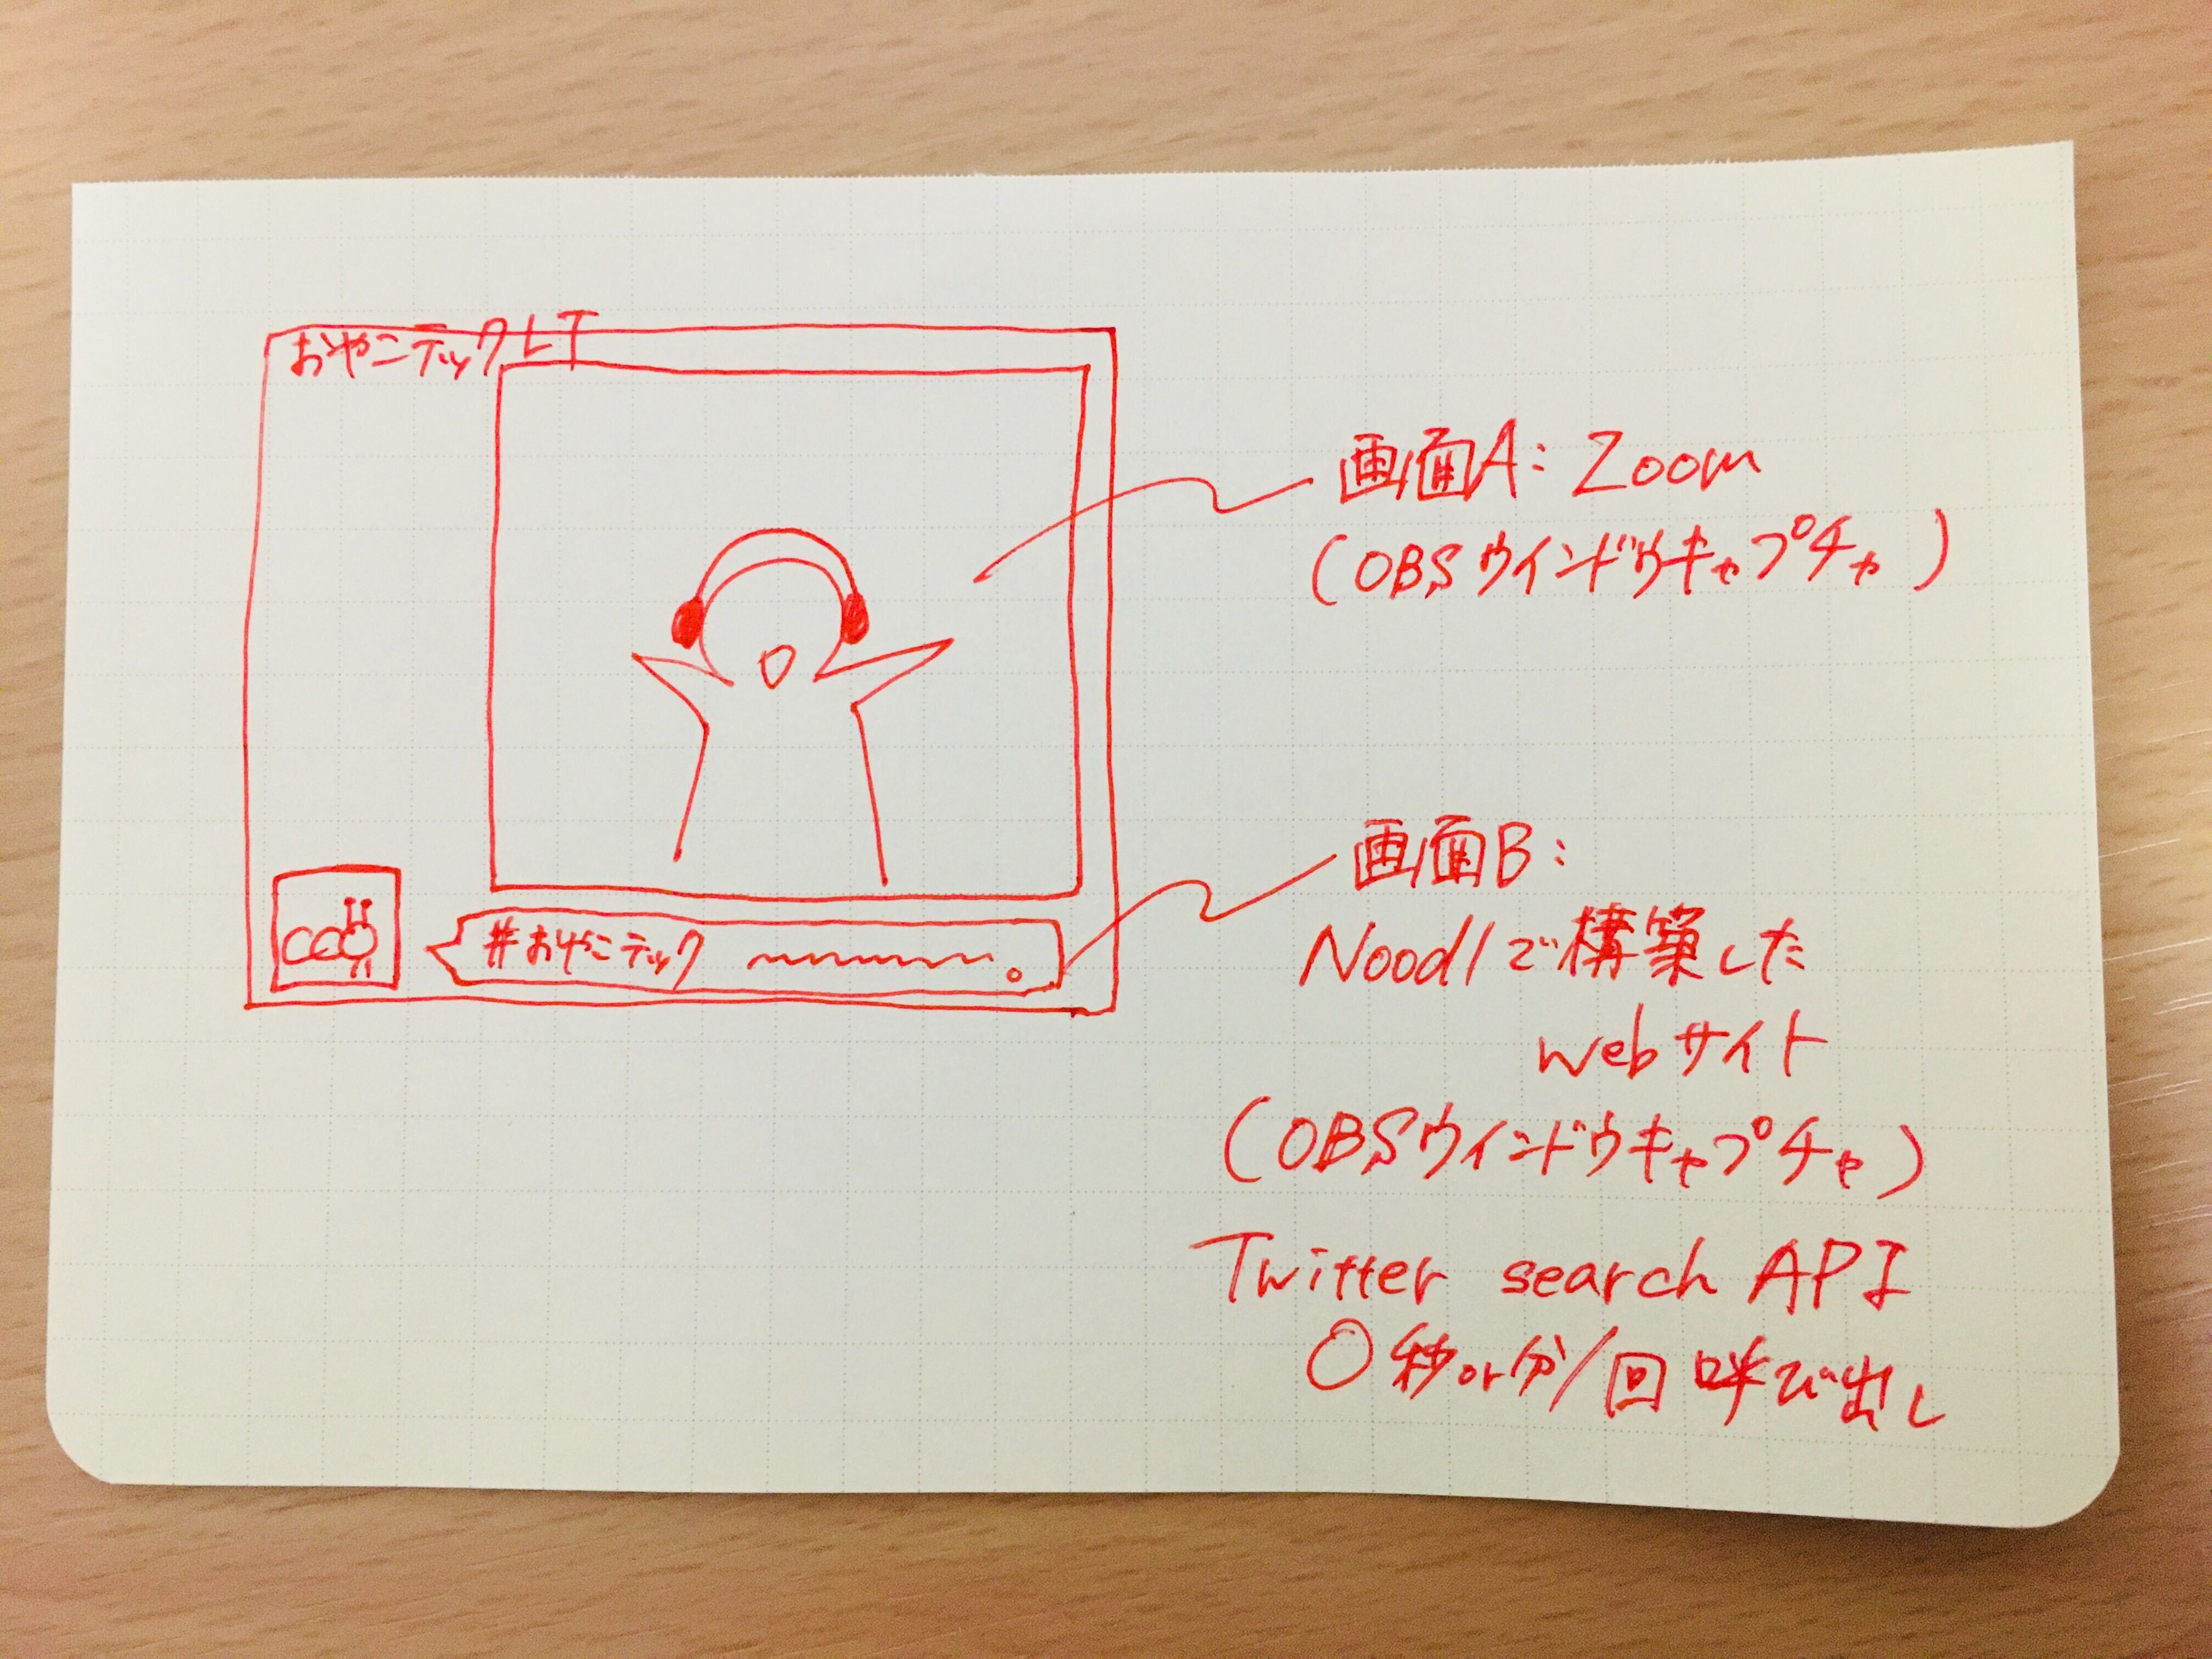 おやこテックLT
#おやこテック
画面A: Zoom
(OBSウインドウキャプチャ)
画面B:
Noodlで構築した
webサイト
(OBSウインドウキャプチャ)
Twitter search API
〇秒or分/回 呼び出し